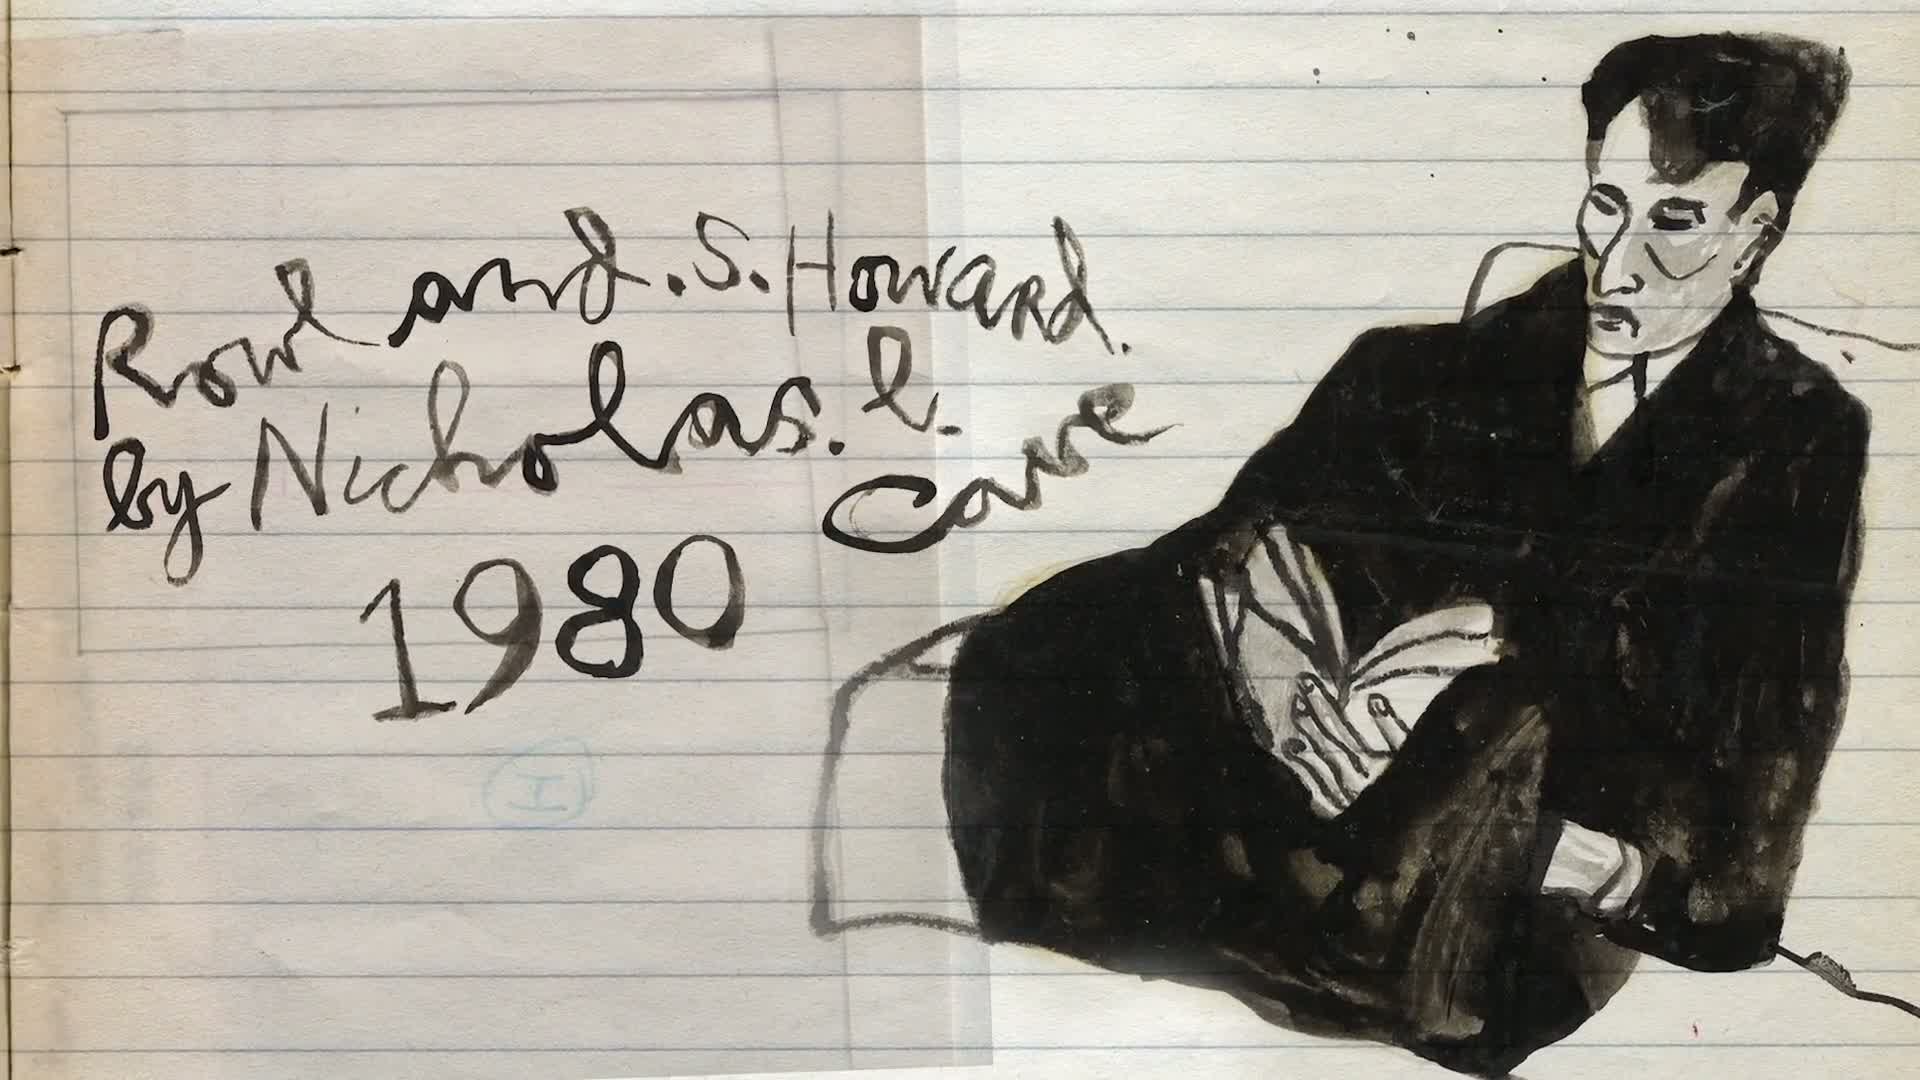 Rowland.S.Howard.
by Nicholas.l.
Cave
1980
I